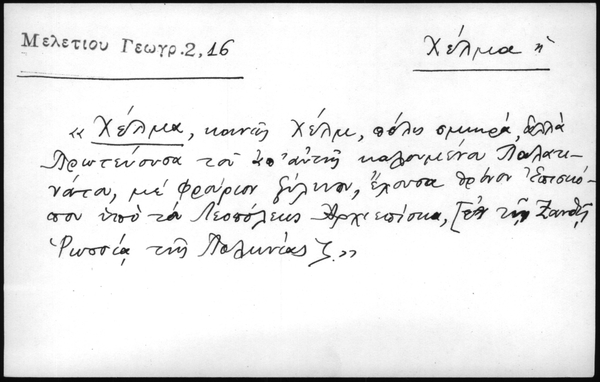 Μελετίου Γεωγρ. 2, 16
Χέλμα ἡ
« Χέλμα, κοινῶς Χέλμ, πόλις σμικρά, ἀλλὰ
Πρωτεύουσα τοῦ ἀπ' αὐτῆς καλουμένου Παλατι-
νάτου, μὲ φρούριον ξύλινον, ἔχουσα θρόνον Ἐπισκό-
που ὑπὸ τὸν Λεοπόλεως Ἀρχιεπίσκο, [ἐν τῇ Ξανθῇ
Ῥωσσίᾳ τῆς Πολωνίας]. »